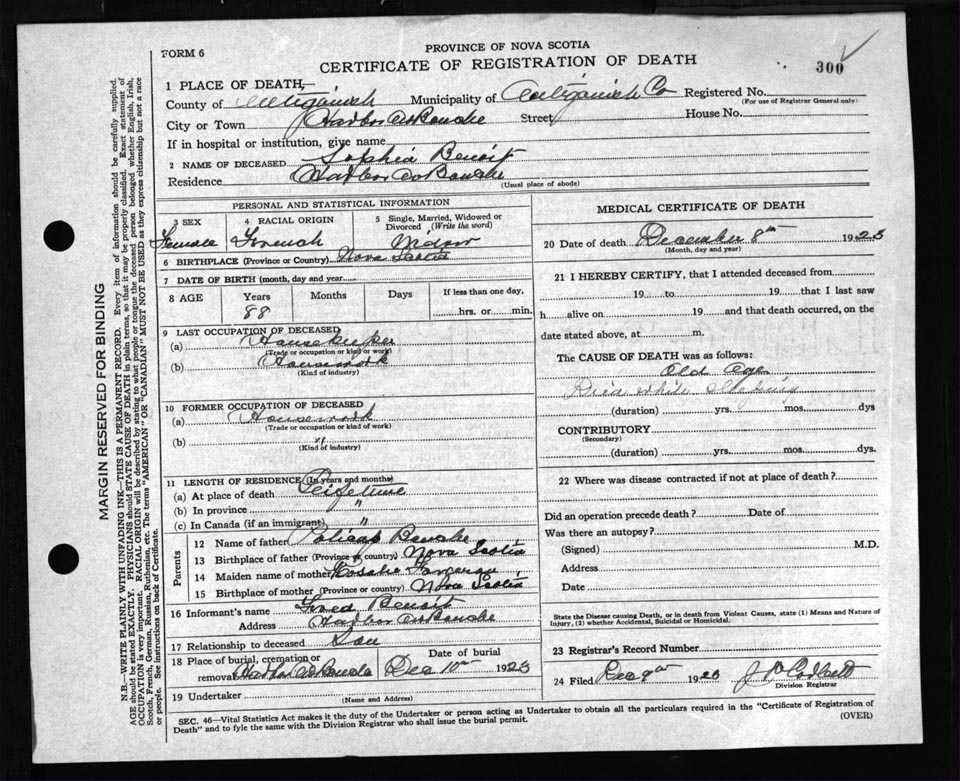 PROVINCE OF NOVA SCOTIA
FORM 6
CERTIFICATE OF REGISTRATION OF DEATH
300
1 PLACE OF DEATH,—
County of Antigonish Municipality of Antigonish Co Registered No.
(For use of Registrar General only)
City or Town Harbor Au Bouche Street House No.
If in hospital or institution, give name
2 NAME OF DECEASED Sophia Benoit
Residence Harbor Au Bouche
(Usual place of abode)
PERSONAL AND STATISTICAL INFORMATION
3 SEX 4 RACIAL ORIGIN 5 Single, Married, Widowed or Divorced (Write the word)
Female French
6 BIRTHPLACE (Province or Country) Nova Scotia
7 DATE OF BIRTH (month, day and year)
8 AGE Years Months Days If less than one day,
88 hrs. or min.
9 LAST OCCUPATION OF DECEASED
(a) Housekeeper
(Trade or occupation or kind of work)
(b) Housework
(Kind of industry)
10 FORMER OCCUPATION OF DECEASED
(a) Housework
(Trade or occupation or kind of work)
(b) "
(Kind of industry)
11 LENGTH OF RESIDENCE (In years and months)
(a) At place of death Lifetime
(b) In province "
(c) In Canada (if an immigrant) "
Parents
12 Name of father
13 Birthplace of father (Province or country) Nova Scotia
14 Maiden name of mother
15 Birthplace of mother (Province or country) Nova Scotia
16 Informant's name Fred Benoit
Address Harbor Au Bouche
17 Relationship to deceased Son
18 Place of burial, cremation or removal Harbor Au Bouche Date of burial Dec 10th 1923
19 Undertaker
(Name and Address)
MEDICAL CERTIFICATE OF DEATH
20 Date of death December 8th 1923
(Month, day and year)
21 I HEREBY CERTIFY, that I attended deceased from
19 to 19 that I last saw
h alive on 19 and that death occurred, on the
date stated above, at m.
The CAUSE OF DEATH was as follows:
Old Age
Died while sleeping
(duration) yrs. mos. dys
CONTRIBUTORY
(Secondary)
(duration) yrs. mos. dys.
22 Where was disease contracted if not at place of death?
Did an operation precede death? Date of
Was there an autopsy?
(Signed) M.D.
Address
Date
State the Disease causing Death, or in death from Violent Causes, state (1) Means and Nature of
Injury, (2) whether Accidental, Suicidal or Homicidal.
23 Registrar's Record Number
24 Filed Dec 9th 19
Division Registrar
SEC. 46—Vital Statistics Act makes it the duty of the Undertaker or person acting as Undertaker to obtain all the particulars required in the "Certificate of Registration of
Death" and to fyle the same with the Division Registrar who shall issue the burial permit.
(OVER)
MARGIN RESERVED FOR BINDING
N.B.—WRITE PLAINLY WITH UNFADING INK—THIS IS A PERMANENT RECORD. Every item of information should be carefully supplied.
AGE should be stated EXACTLY. PHYSICIANS should STATE CAUSE OF DEATH in plain terms, so that it may be properly classified. Exact statement of
OCCUPATION is very important. RACIAL ORIGIN will be described by stating to what people or tongue the deceased person belonged whether English, Irish,
Scotch, French, German, Russian, Ruthenian, etc. The terms "AMERICAN" OR "CANADIAN" MUST NOT BE USED as they express citizenship but not a race
or people. See instructions on back of Certificate.